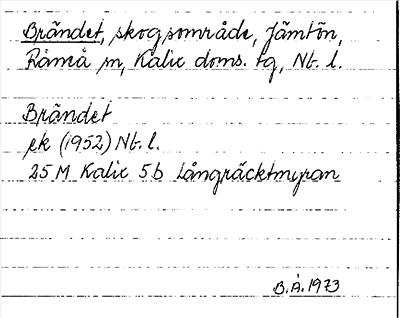 Brändet, skogsområde, Jämtön,
Råneå sn, Kalix doms. tg, Nb. l.
Brändet
ek (1952) Nb. l.
25 M Kalix 5b Långräcktmyran
B.Å. 1973